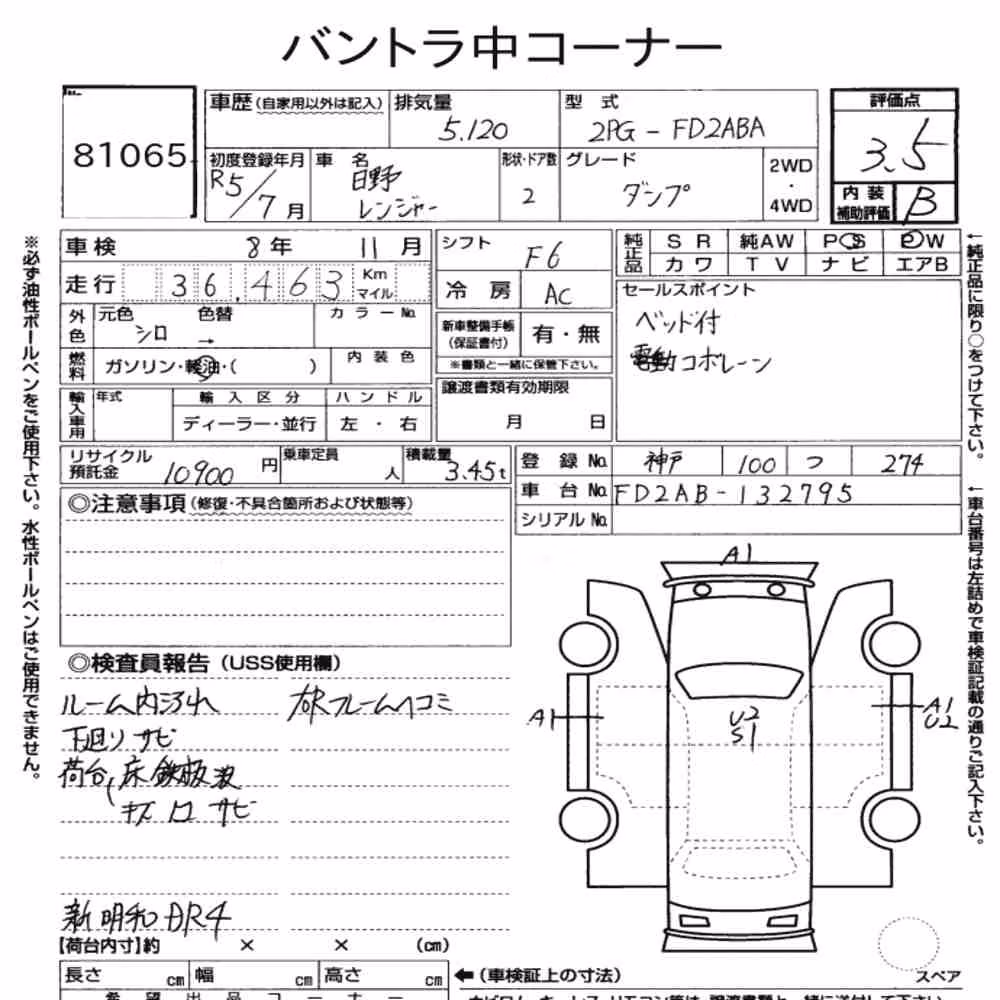 バントラ中コーナー
81065
車歴(自家用以外は記入) 排気量 5.120 型式 2PG-FD2ABA
評価点 3.5
初度登録年月 R5/7月 車名 日野 レンジャー 形状・ドア数 2 グレード ダンプ 2WD・4WD
内装補助評価 B
車検 8年 11月 シフト F6
純正品 SR 純AW PS PW
カワ TV ナビ エアB
走行 36.463 Km マイル 冷房 AC
セールスポイント
ベッド付
電動コボレーン
外色 元色 シロ 色替 → カラーNo.
新車整備手帳(保証書付) 有・無
※書類と一緒に保管下さい。
燃料 ガソリン・軽油・( ) 内装色
譲渡書類有効期限 月 日
輸入車用 年式 輸入区分 ハンドル
ディーラー・並行 左・右
リサイクル預託金 10900円 乗車定員 人 積載量 3.45t
登録No. 神戸 100 つ 274
車台No. FD2AB-132795
シリアルNo.
◎注意事項(修復・不具合箇所および状態等)
◎検査員報告(USS使用欄)
ルーム内汚れ 右Rフレームヘコミ
下廻りサビ
荷台(床鉄板波
キズ 口 サビ
新明和DR4
【荷台内寸】約 × × (cm)
長さ cm 幅 cm 高さ cm ←(車検証上の寸法)
希望出品コーナー
A1
A1
U2
S1
A1
U2
スペア
※必ず油性ボールペンをご使用下さい。水性ボールペンはご使用できません。
←純正品に限り○をつけて下さい。
←車台番号は左詰めで車検証記載の通りご記入下さい。